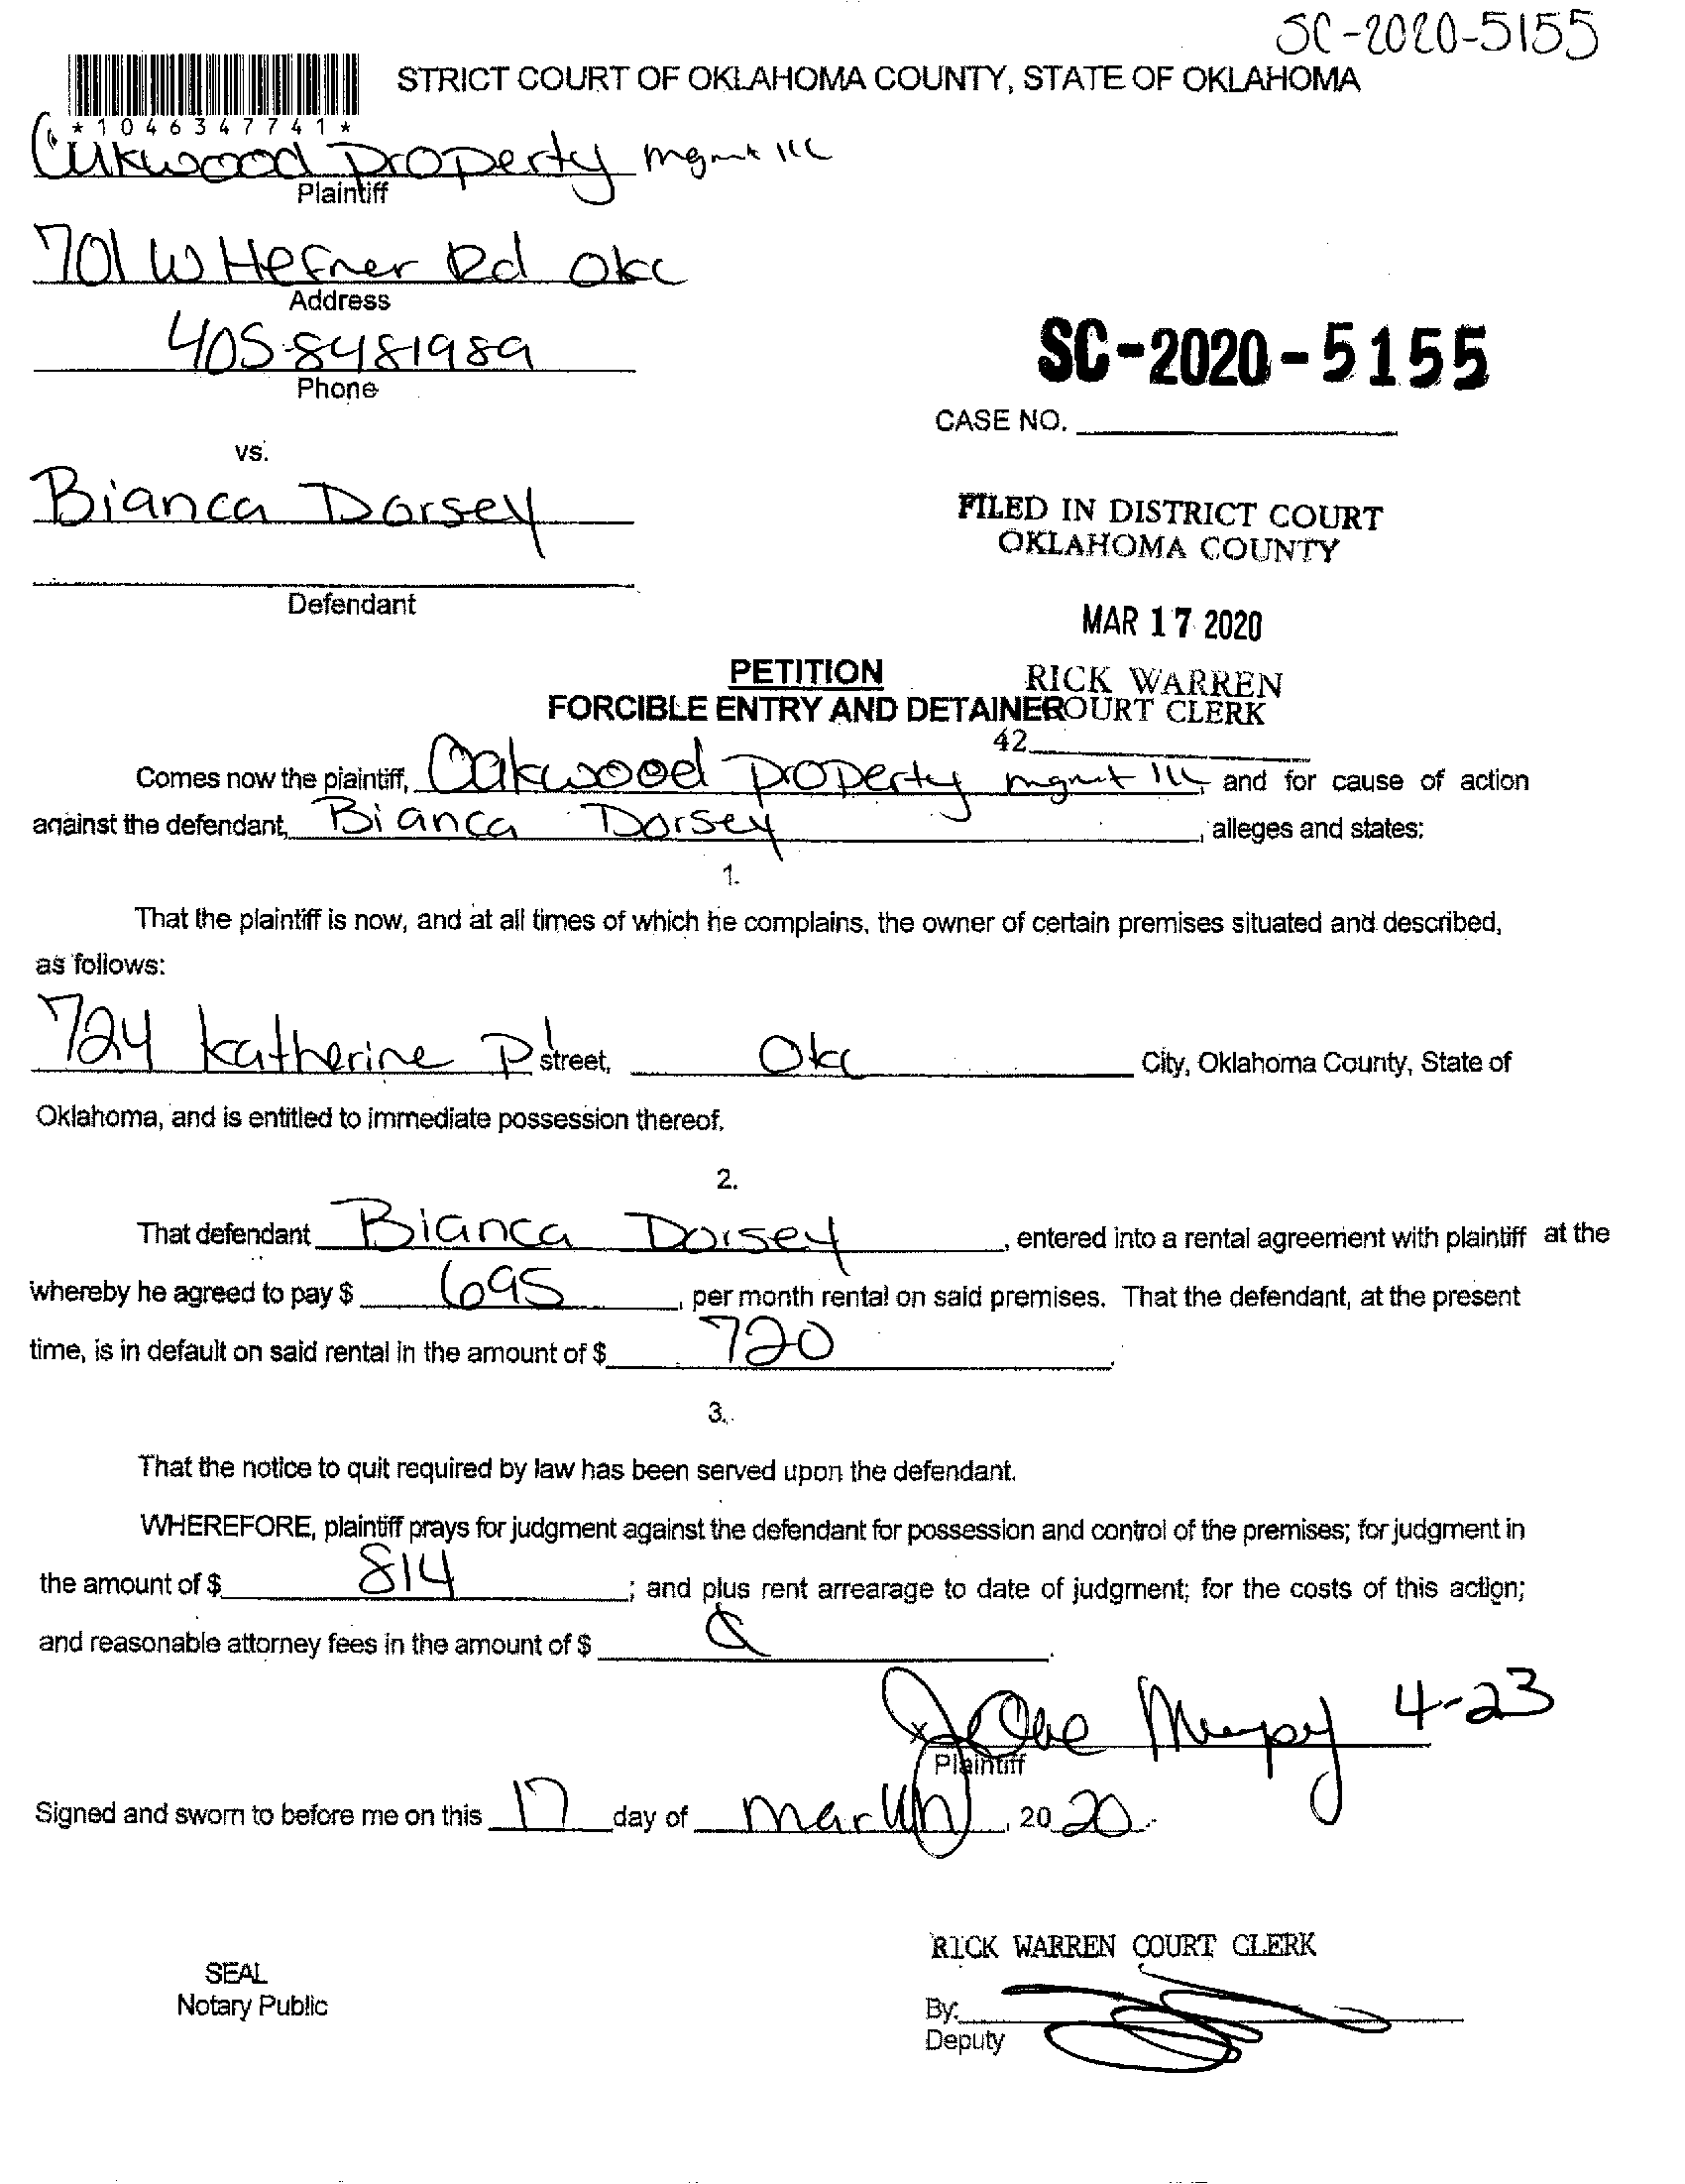 SC-2020-5155
STRICT COURT OF OKLAHOMA COUNTY, STATE OF OKLAHOMA
*1046347741*
Oakwood Property mgmt llc
Plaintiff
701 W Hefner Rd Okc
Address
405-8481989
Phone
SC-2020-5155
CASE NO.
vs.
Bianca Dorsey
FILED IN DISTRICT COURT
OKLAHOMA COUNTY
Defendant
MAR 17 2020
PETITION
RICK WARREN
FORCIBLE ENTRY AND DETAINER
COURT CLERK
42
Comes now the plaintiff, Oakwood Property mgmt llc, and for cause of action
against the defendant, Bianca Dorsey, alleges and states:
1.
That the plaintiff is now, and at all times of which he complains, the owner of certain premises situated and described,
as follows:
724 Katherine Pl street, Okc City, Oklahoma County, State of
Oklahoma, and is entitled to immediate possession thereof.
2.
That defendant Bianca Dorsey, entered into a rental agreement with plaintiff at the
whereby he agreed to pay $ 695, per month rental on said premises. That the defendant, at the present
time, is in default on said rental in the amount of $ 720.
3.
That the notice to quit required by law has been served upon the defendant.
WHEREFORE, plaintiff prays for judgment against the defendant for possession and control of the premises; for judgment in
the amount of $ 814; and plus rent arrearage to date of judgment; for the costs of this action;
and reasonable attorney fees in the amount of $
4-23
Plaintiff
Signed and sworn to before me on this 17 day of March, 20 20.
RICK WARREN COURT CLERK
SEAL
Notary Public
By:
Deputy